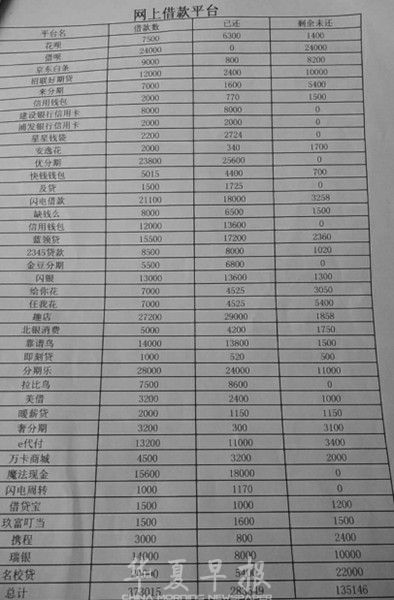 网上借款平台
平台名 借款数 已还 剩余未还
花呗 7500 6300 1400
借呗 24000 0 24000
京东白条 9000 800 8200
招联好期贷 12000 2400 10000
来分期 7000 1600 5400
信用钱包 2000 770 1500
建设银行信用卡 8000 8000 0
浦发银行信用卡 2000 2000 0
星星钱袋 2200 2724 0
安逸花 2000 340 1700
优分期 23800 25600 0
快钱钱包 5015 4400 700
及贷 1500 1725 0
闪电借款 21100 18000 3258
缺钱么 8000 6500 1500
信用钱包 12000 13600 0
蓝领贷 15500 17200 2360
2345贷款 8500 8000 1020
金豆分期 5500 6800 0
闪银 13000 13600 1300
给你花 7000 4525 3050
任我花 7000 4525 5400
趣店 27200 29000 1858
北银消费 5000 4200 1750
靠谱鸟 14000 13800 1500
即刻贷 1000 520 500
分期乐 28000 24000 11000
拉比鸟 7500 8600 0
美借 3200 2400 1000
暖薪贷 2000 1150 1150
奢分期 3200 300 3100
e代付 13200 11000 3400
万卡商城 4500 3200 2000
魔法现金 15600 18000 0
闪电周转 1000 1170 0
借贷宝 1500 1000 1200
玖富叮当 1500 1600 1500
携程 3000 800 2400
瑞银 14000 8000 10000
名校贷 22000
总计 373015 135146
华夏早报
CHINA MORNING NEWSPAPER